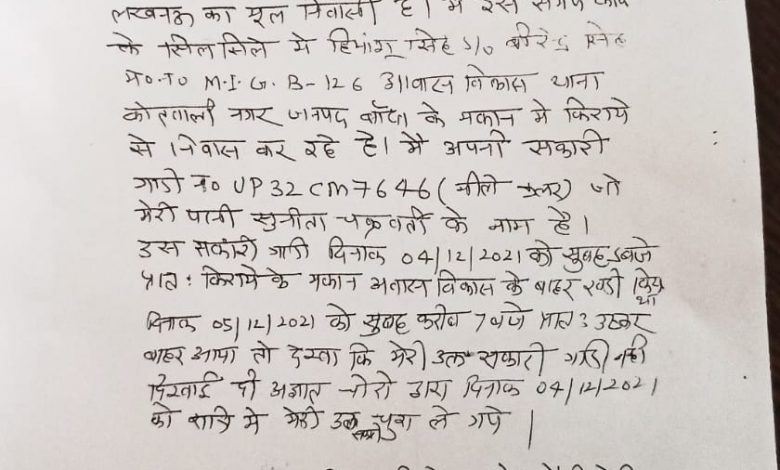 लखनऊ का मूल निवासी है। मै इस समय कार्य
के सिलसिले मे हिमांशू सिंह S/o बीरेन्द्र सिंह
म०.न० M.I.G. B-126 आवास विकास थाना
कोतवाली नगर जनपद बाँदा के मकान मे किराये
से निवास कर रहे है। मै अपनी सकारी
गाडी न० UP32CM7646 (नीले कलर) जो
मेरी पत्नी सुनीता चक्रवर्ती के नाम है।
उस सकारी गाडी दिनाक 04/12/2021 को सुबह बजे
प्रात: किराये के मकान अवास विकास के बाहर खडी किये था
दिनाक 05/12/2021 को सुबह करीब 7 बजे प्रात: उठकर
बाहर आया तो देखा कि मेरी उक्त सकारी गाडी नही
दिखाई दी अज्ञात चोरो द्वारा दिनाक 04/12/2021
को रात्रि मे मेरी उक्त चुरा ले गये |